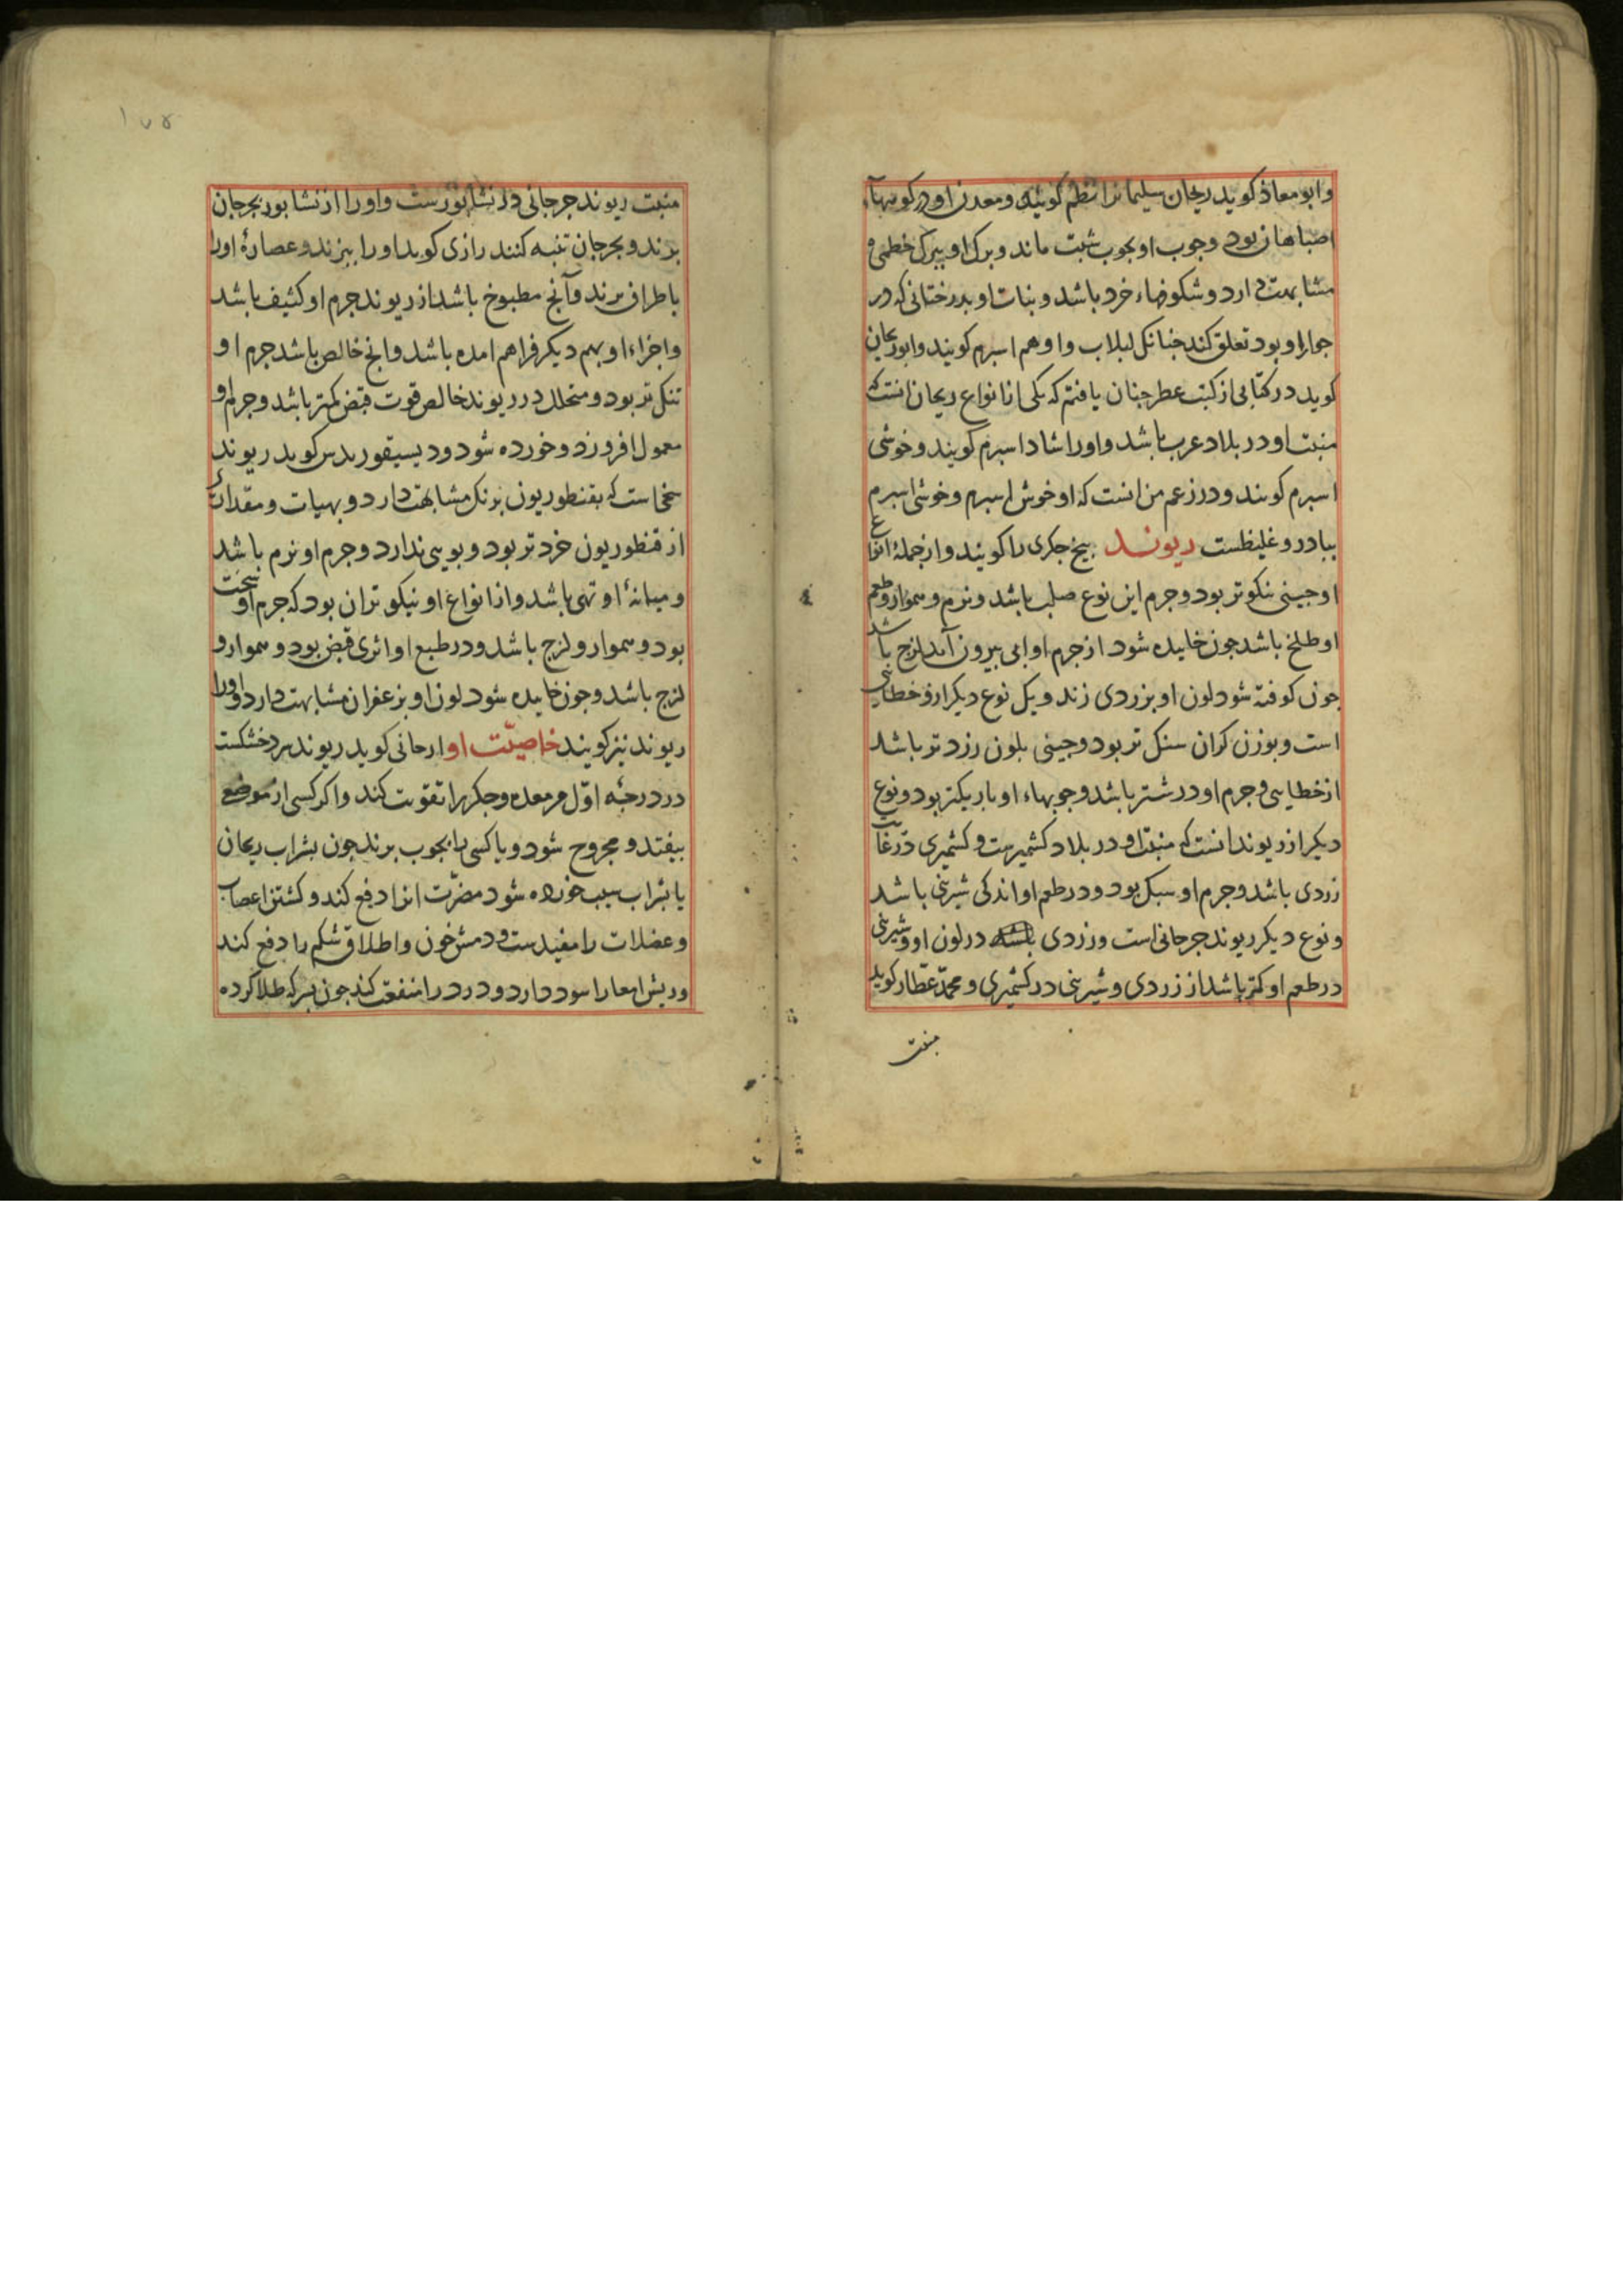 وابو معاذ کوید ریحان سلیمانرا نظم کویند ومعدن او در کوبهاء
اصباهان بود وجوب او بجوب شبت ماند وبرک او ببرک خطمی
مشابهت دارد وشکوفهاء خرد باشد ونبات او بدرختانی که در
جوار او بود تعلق کند جنانکل لبلاب واو هم اسبرم کویند وابوریحان
کوید در کتابی از کتب عطر جنان یافتم که یکی از انواع ریحان انست که
منبت او در بلاد عرب باشد واورا شاداسبرم کویند وخوشی
اسبرم کویند ودر زعم من انست که او خوش اسبرم وخوشی اسبرم
غلیظست ریوند بیخ جکری را کویند واز جملهٔ انواع
او جینی نیکوتر بود وجرم این نوع صلب باشد ونرم وهموار وطعم
او طلخ باشد جون خاییده شود از جرم او ابی بیرون آید لزج باشد
جون کوفته شود لون او بزردی زند ویک نوع دیکر ازو خطایی
است وبوزن کران سنک تر بود وجینی بلون زرد تر باشد
از خطایی وجرم او درشتر باشد وجوبهاء او باریکتر بود ونوع
دیکر از ریوند انست که منبت او در بلاد کشمیرست وکشمیری در غایت
زردی باشد وجرم او سبک بود ودر طعم او اندکی شیرینی باشد
ونوع دیکر ریوند جرجانی است وزردی در لون او وشیرینی
در طعم او کمتر باشد از زردی وشیرینی در کشمیری ومحمد عطار کوید
منبت
۱۷۴
منبت ریوند جرجانی در نشابورست واورا از نشابور بجرجان
برند وبجرجان تنبه کنند رازی کوید اورا ببزند وعصارهٔ اورا
باطراف برند وآنج مطبوخ باشد از ریوند جرم او کثیف باشد
واجزاء او بهم دیکر فراهم امده باشد وانج خالص باشد جرم او
تنک تر بود ومتخلل در ریوند خالص قوت قبض کمتر باشد وجرم او
معمول افروزد وخورده شود ودیسیقوریدس کوید ریوند
بیخا ست که بقنطوریون برنک مشابهت دارد وبهیات ومقدار
از قنطوریون خردتر بود وبویی ندارد وجرم او نرم باشد
ومیانهٔ او تهی باشد واز انواع او نیکوتر ان بود که جرم او سخت
بود وهموار ولزج باشد ودر طبع او اثری قبض بود وهموار و
لزج باشد وجون خاییده شود لون او بزعفران مشابهت دارد واورا
ریوند نیز کویند خاصیّت او ارجانی کوید ریوند سرد خشکست
در درجهٔ اوّل مر معده وجکر را تقویت کند واکر کسی از موضع
بیفتد ومجروح شود ویا کسی را بجوب برند جون بشراب ریحان
یا بشراب سیب خورده شود مضرّت انرا دفع کند وکشتن اعصاب
وعضلات را مفیدست ودمش خون واطلاق شکم را دفع کند
وریش امعا را سود دارد ودرد را منفعت کند جون بسرکه طلا کرده